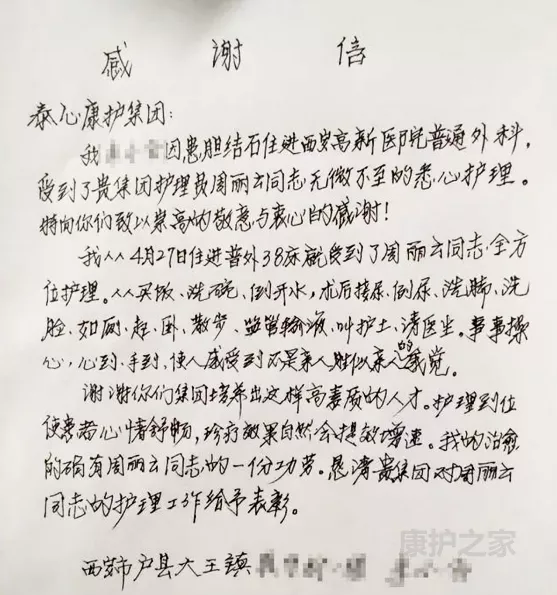 感谢信
泰心康护集团:
我因患胆结石住进西安高新医院普通外科,
受到了贵集团护理员周丽云同志无微不至的悉心护理。
特向你们致以崇高的敬意与衷心的感谢!
我从4月27日住进普外38床就受到了周丽云同志全方
位护理。从买饭、洗碗、倒开水,术后接尿、倒尿、洗脚、洗
脸、如厕、起、卧、散步、监管输液、叫护士、请医生。事事操
心,心到、手到,使人感受到不是亲人胜似亲人的感觉。
谢谢你们集团培养出这样高素质的人才。护理到位
使患者心情舒畅,诊疗效果自然会提效增速。我的治愈
的确有周丽云同志的一份功劳。恳请贵集团对周丽云
同志的护理工作给予表彰。
西安市户县大王镇
康护之家